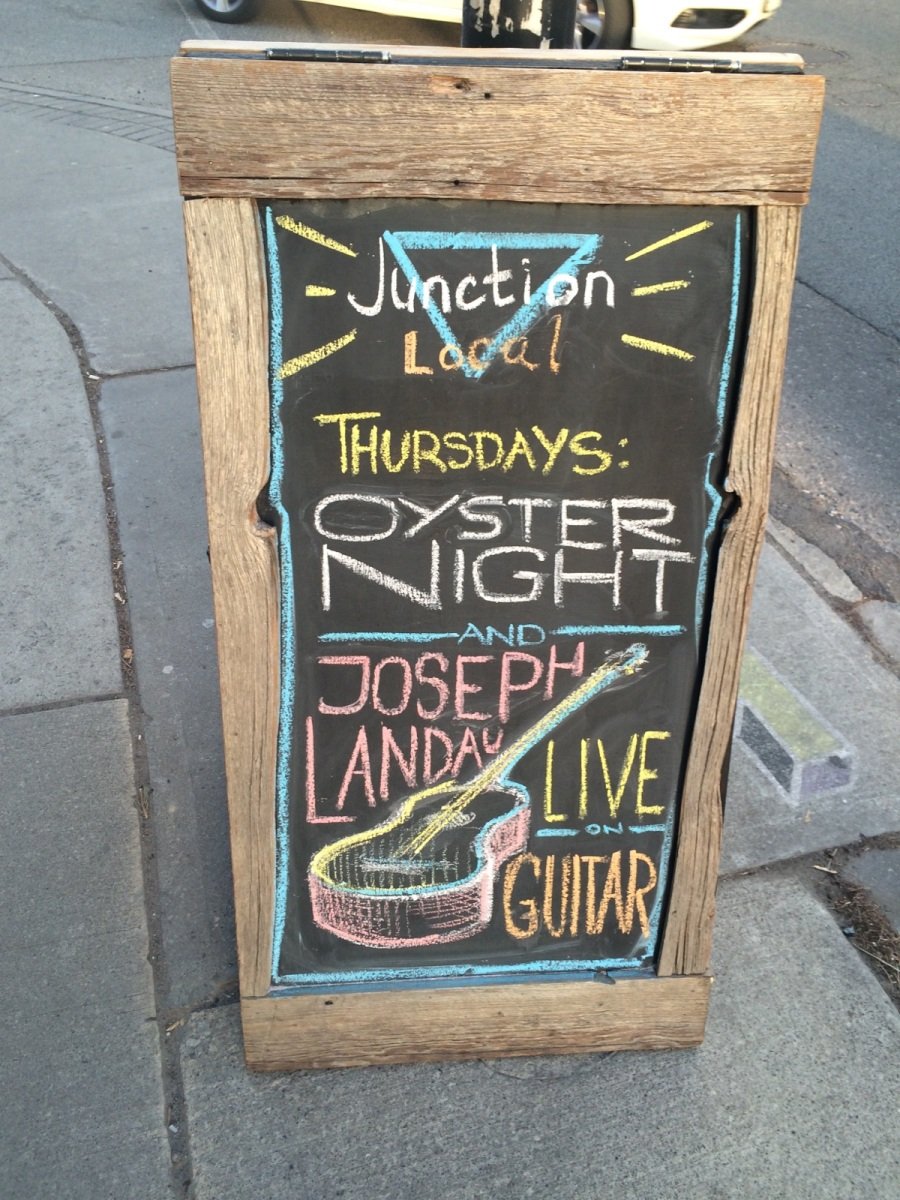 Junction
Local
THURSDAYS:
OYSTER
NIGHT
AND
JOSEPH
LANDAU
LIVE
ON
GUITAR